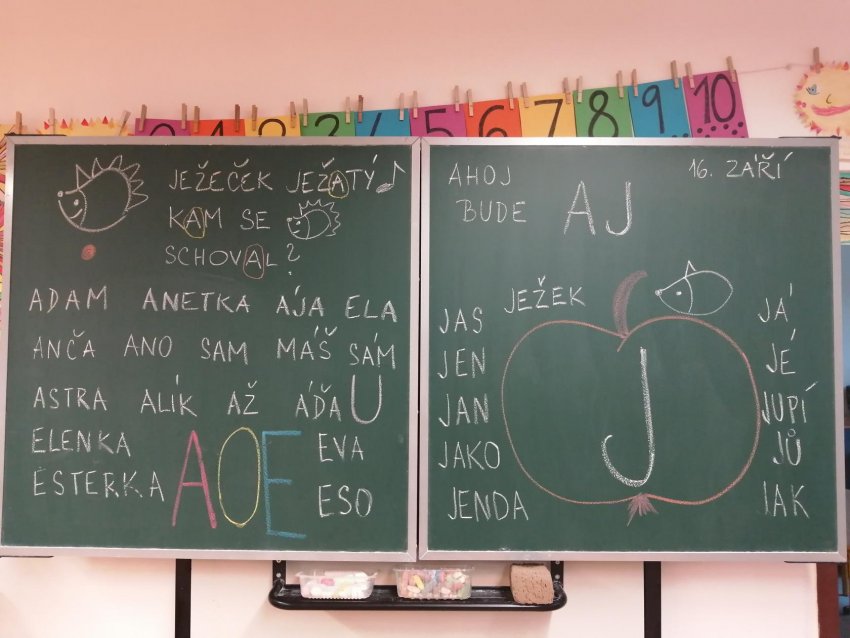 0 1 2 3 4 5 6 7 8 9 10
JEŽEČEK JEŽATÝ
KAM SE
SCHOVAL?
ADAM ANETKA ÁJA ELA
ANČA ANO SAM MÁŠ SÁM
ASTRA ALÍK AŽ ÁĎA U
ELENKA EVA
ESTERKA ESO
A O E
AHOJ 16. ZÁŘÍ
BUDE AJ
JEŽEK
JAS JÁ
JEN JÉ
JAN JUPÍ
JAKO JŮ
JENDA JAK
J